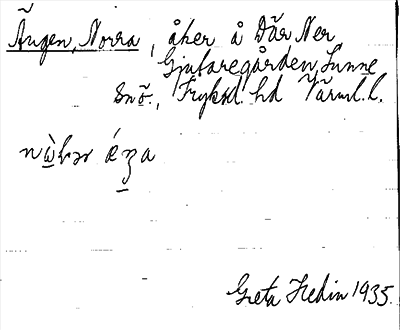 Ängen, Norra, åker å Där Ner
Gjutaregården, Sunne
Snö., Fryksd. hd Värml. l.
Greta Hedin 1935.